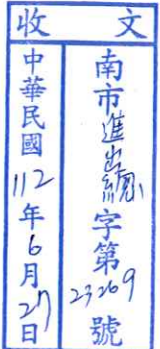 收文
南市進出總字第23269號
中華民國112年6月27日